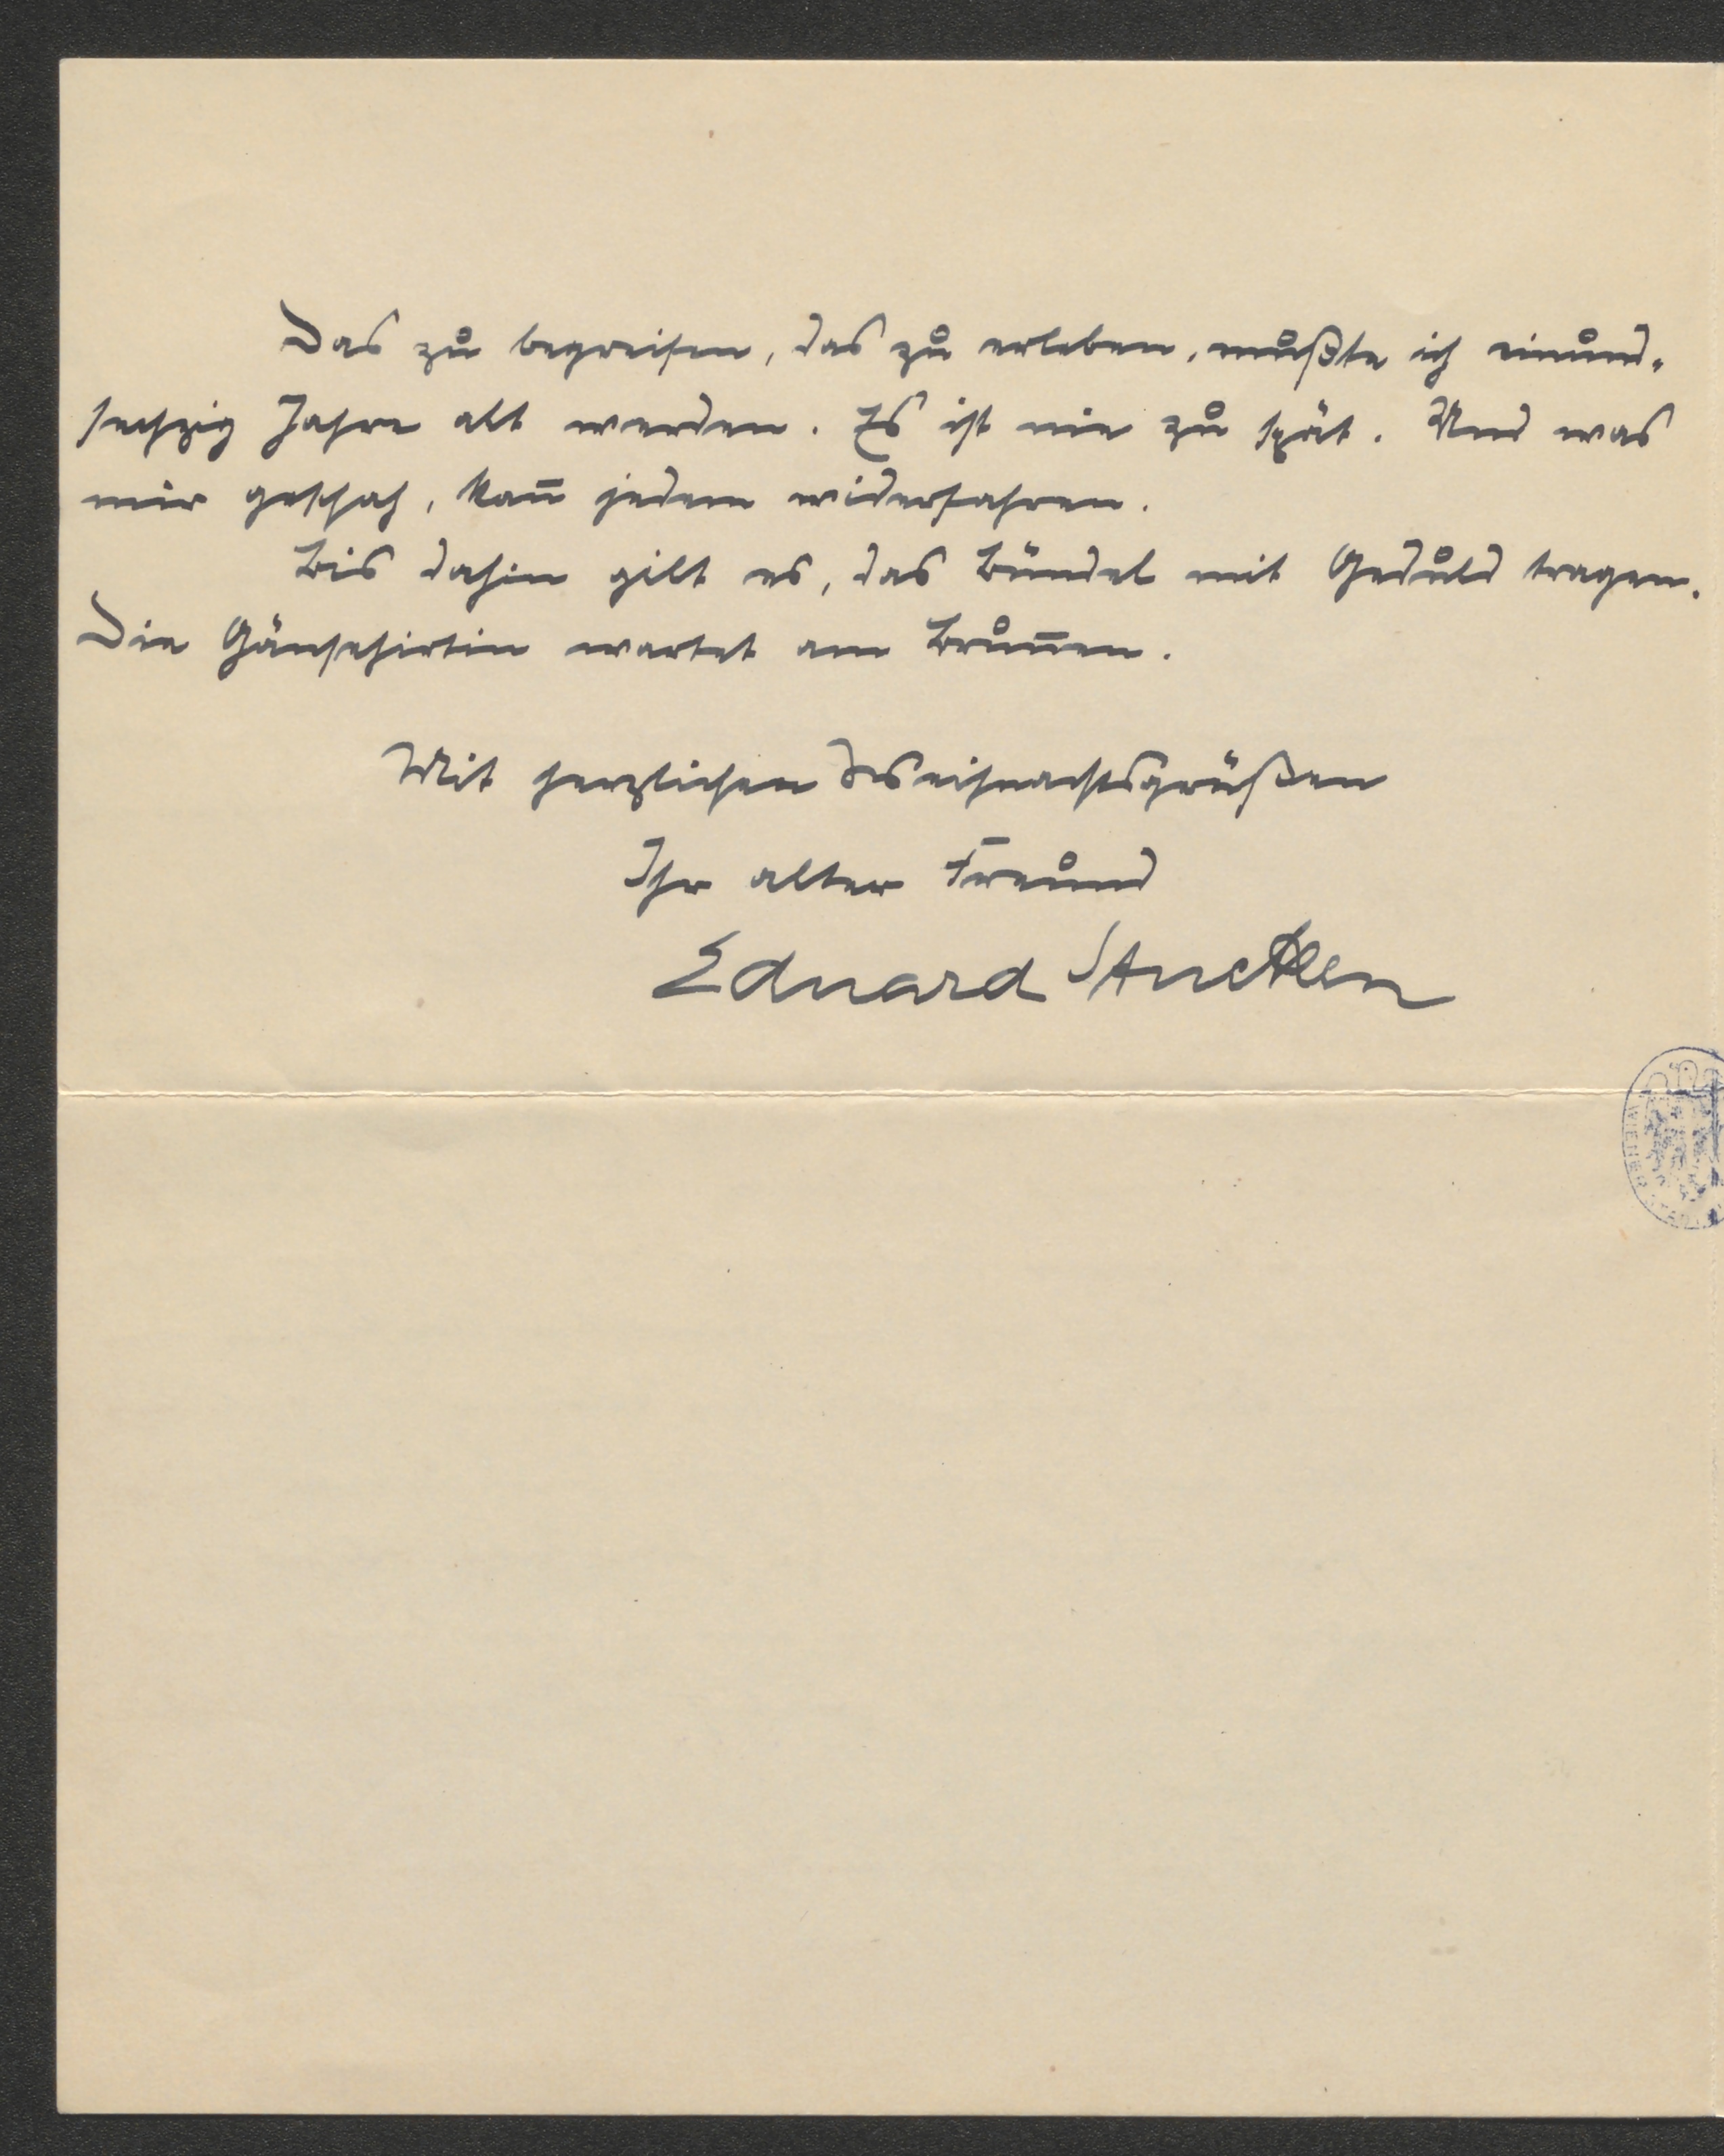 Das zu begreifen, das zu erleben, mußte ich einund-
sechzig Jahre alt werden. Es ist nie zu spät. Und was
mir geschah, kan̄ jedem widerfahren.
Bis dahin gilt es, das Bündel mit Geduld tragen.
Die Gänsehirtin wartet am Brun̄en.
Mit herzlichen Weihnachtsgrüßen
Ihr alter Freund
Eduard Stucken
WIENER